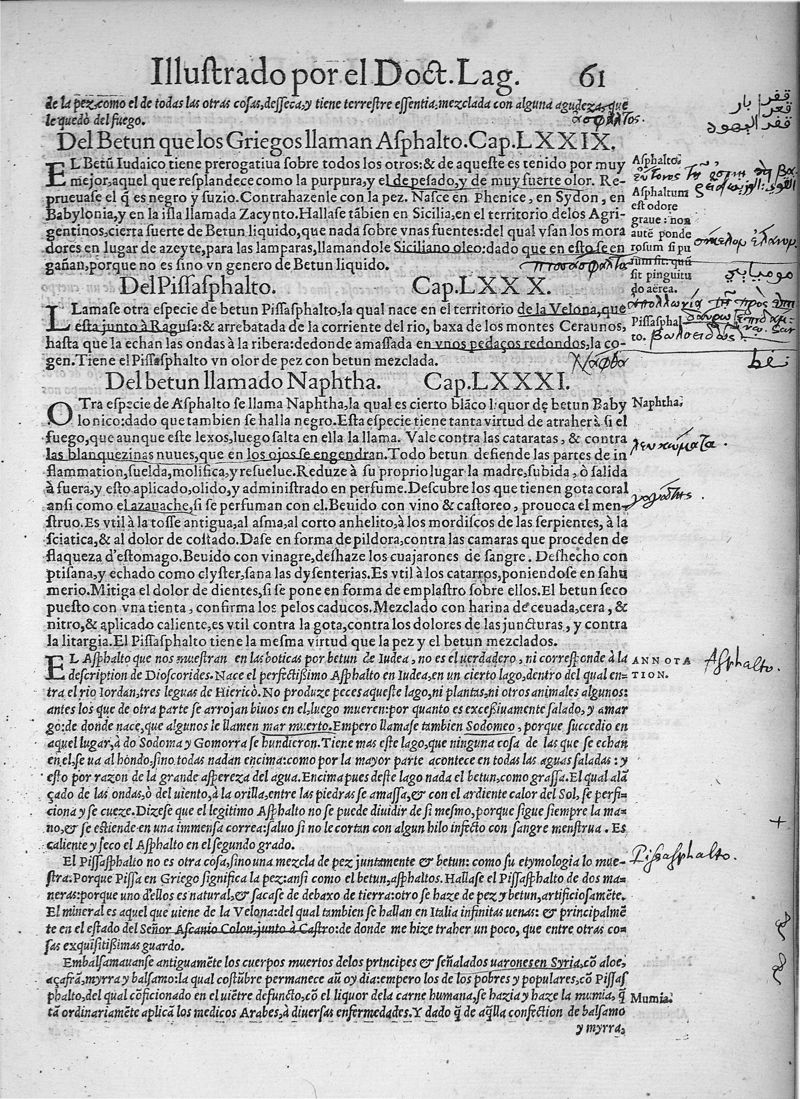 Illuſtrado por el Doct. Lag. 61
de la pez, como el de todas las otras coſas, deſſeca, y tiene terreſtre eſſentia, mezclada con alguna agudeza, que
le quedò del fuego.
Del Betun que los Griegos llaman Aſphalto. Cap. LXXIX.
EL Betũ Iudaico tiene prerogatiua ſobre todos los otros: & de aqueſte es tenido por muy
mejor, aquel que reſplandece como la purpura, y el de peſado, y de muy fuerte olor. Re-
prueuaſe el q̃ es negro y ſuzio. Contrahazenle con la pez. Naſce en Phenice, en Sydon, en
Babylonia, y en la iſla llamada Zacynto. Hallaſe tãbien en Sicilia, en el territorio delos Agri-
gentinos, cierta ſuerte de Betun liquido, que nada ſobre vnas fuentes: del qual vſan los mora
dores en lugar de azeyte, para las lamparas, llamandole Siciliano oleo: dado que en eſto ſe en
gañan, porque no es ſino vn genero de Betun liquido.
Aſphalto.
Aſphaltum
eſt odore
graue: non
autẽ ponde
roſum ſi pu
rum ſit: quã
ſit pinguitu
do aërea.
قفر
قفر اليهود
Del Piſſaſphalto. Cap. LXXX.
LLamaſe otra eſpecie de betun Piſſaſphalto, la qual nace en el territorio de la Velona, que
eſtà junto à Raguſa: & arrebatada de la corriente del rio, baxa de los montes Ceraunos,
haſta que la echan las ondas à la ribera: dedonde amaſſada en vnos pedaços redondos, la co-
gen. Tiene el Piſſaſphalto vn olor de pez con betun mezclada.
Piſſaſphal
to.
Del betun llamado Naphtha. Cap. LXXXI.
OTra eſpecie de Aſphalto ſe llama Naphtha, la qual es cierto blãco liquor de betun Baby
lonico: dado que tambien ſe halla negro. Eſta eſpecie tiene tanta virtud de atraherà ſi el
fuego, que aunque eſte lexos, luego ſalta en ella la llama. Vale contra las cataratas, & contra
las blanquezinas nuues, que en los ojos ſe engendran. Todo betun defiende las partes de in
flammation, ſuelda, molifica, y reſuelue. Reduze à ſu proprio lugar la madre, ſubida, ò ſalida
à fuera, y eſto aplicado, olido, y adminiſtrado en perfume. Deſcubre los que tienen gota coral
anſi como el azauache, ſi ſe perfuman con el. Beuido con vino & caſtoreo, prouoca el men-
ſtruo. Es vtil à la toſſe antigua, al aſma, al corto anhelito, à los mordiſcos de las ſerpientes, à la
ſciatica, & al dolor de coſtado. Daſe en forma de pildora, contra las camaras que proceden de
flaqueza d'eſtomago. Beuido con vinagre, deshaze los cuajarones de ſangre. Deshecho con
ptiſana, y echado como clyſter, ſana las dyſenterias. Es vtil à los catarros, poniendoſe en ſahu
merio. Mitiga el dolor de dientes, ſi ſe pone en forma de emplaſtro ſobre ellos. El betun ſeco
pueſto con vna tienta, confirma los pelos caducos. Mezclado con harina de ceuada, cera, &
nitro, & aplicado caliente, es vtil contra la gota, contra los dolores de las juncturas, y contra
la litargia. El Piſſaſphalto tiene la meſma virtud que la pez y el betun mezclados.
Naphtha.
نفط
EL Aſphalto que nos mueſtran en las boticas por betun de Iudea, no es el uerdadero, ni correſponde à la
deſcription de Dioſcorides. Nace el perfectiſsimo Aſphalto en Iudea, en un cierto lago, dentro del qual en-
tra el rio Iordan, tres leguas de Hiericò. No produze peces aqueſte lago, ni plantas, ni otros animales algunos:
antes los que de otra parte ſe arrojan biuos en el, luego mueren: por quanto es exceſsiuamente ſalado, y amar
go: de donde nace, que algunos le llamen mar muerto. Empero llamaſe tambien Sodomeo, porque ſuccedio en
aquel lugar, à do Sodoma y Gomorra ſe hundieron. Tiene mas eſte lago, que ninguna coſa de las que ſe echan
en el, ſe ua al hondo, ſino todas nadan encima: como por la mayor parte acontece en todas las aguas ſaladas: y
eſto por razon de la grande aſpereza del agua. Encima pues deſte lago nada el betun, como graſſa. El qual alã
çado de las ondas, ò del uiento, à la orilla, entre las piedras ſe amaſſa, & con el ardiente calor del Sol, ſe perfi-
ciona y ſe cueze. Dizeſe que el legitimo Aſphalto no ſe puede diuidir de ſi meſmo, porque ſigue ſiempre la ma-
no, & ſe eſtiende en una immenſa correa: ſaluo ſi no le cortan con algun hilo infecto con ſangre menſtrua. Es
caliente y ſeco el Aſphalto en el ſegundo grado.
ANNOTA
TION.
Aſphalto.
El Piſſaſphalto no es otra coſa, ſino una mezcla de pez juntamente & betun: como ſu etymologia lo mue-
ſtra: Porque Piſſa en Griego ſignifica la pez: anſi como el betun, aſphaltos. Hallaſe el Piſſaſphalto de dos ma-
neras: porque uno d'ellos es natural, & ſacaſe de debaxo de tierra: otro ſe haze de pez y betun, artificioſamẽte.
El mineral es aquel que uiene de la Velona: del qual tambien ſe hallan en Italia infinitas uenas: & principalmẽ
te en el eſtado del Señor Aſcanio Colon, junto à Caſtro: de donde me hize traher un poco, que entre otras co-
ſas exquiſitiſsimas guardo.
Piſſaſphalto.
Embalſamauanſe antiguamẽte los cuerpos muertos de los principes & ſeñalados uarones en Syria, cõ aloe,
açafrã, myrra y balſamo: la qual coſtũbre permanece aũ oy dia: empero los de los pobres y populares, cõ Piſſaſ
phalto, del qual cõficionado en el uiẽtre defuncto, cõ el liquor dela carne humana, ſe hazia y haze la mumia, q̃
tã ordinariamẽte aplicã los medicos Arabes, à diuerſas enfermedades. Y dado q̃ de aq̃lla confection de balſamo
Mumia.
y myrra,